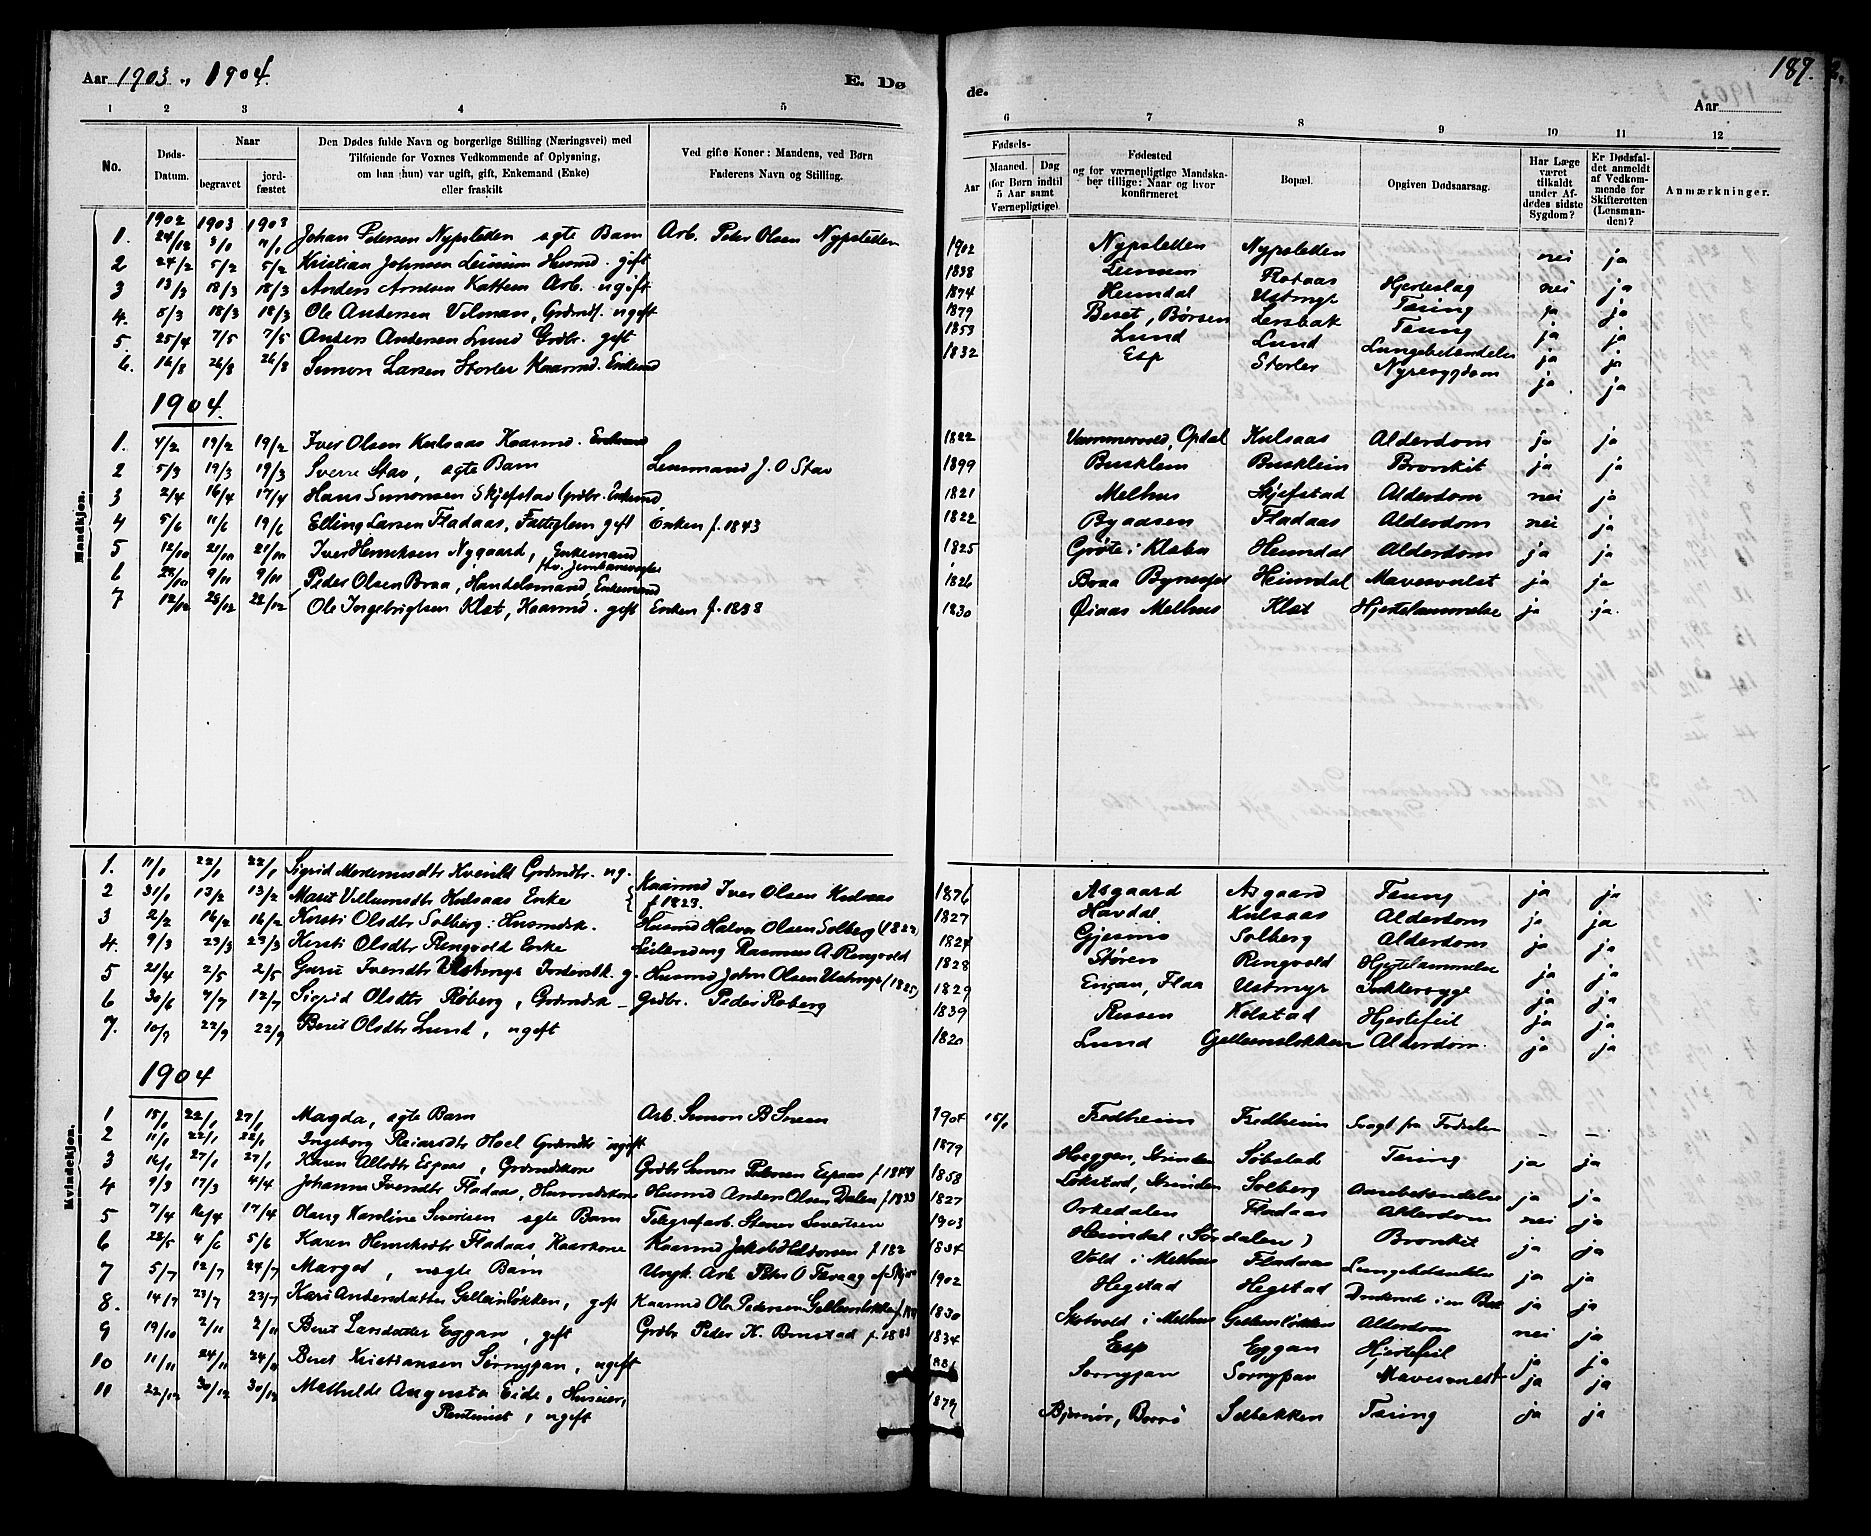 Aar 1903 „ 1904. E. Dø
1 2 3 4 5
No. Døds-Datum. Naar begravet jordfæstet Den Dødes fulde Navn og borgerlige Stilling (Næringsvei) med Tilføiende for Voxnes Vedkommende af Oplysning, om han (hun) var ugift, gift, Enkemand (Enke) eller fraskilt Ved gifte Koner: Mandens, ved Børn Faderens Navn og Stilling.
Mandkjøn.
1902 1903 1903
1. 24/12 Johan Petersen Nypsletten ægte Barn Arb. Peter Olsen Nypsletten
2 24/2 5/2 5/2 Kristian Johnsen gift
3 13/3 18/3 18/3 Anders Arntsen Kattem Arb. ugift
4. 8/3 18/3 18/3 Ole Andersen ugift
5 25/4 7/5 7/5 Anders Andersen Lund Grdbr. gift
6. 16/8 26/8 26/8 Simon Larsen Storler Kaarmd. Enkemd
1904.
1. 4/2 19/2 19/2 Iver Olsen Kulsaas Kaarmd. Enkemd
2 5/3 19/3 19/3 Sverre Stav, ægte Barn Lensmand J. O Stav
3 2/4 16/4 17/4 Hans Simonsen Skjefstad Grdbr. Enkemd
4 5/6 11/6 19/6 Elling Larsen Fladaas, Fattiglem gift Enken f. 1843
5 12/10 21/10 21/10 Iver Henriksen Nygaard, Enkemand
6 9/11 9/11 Peder Olsen Braa, Handelsmand, Enkemand
7 12/12 22/12 Ole Ingebrigtsen Klæt, Kaarmd. gift Enken f. 1838
Kvindekjøn.
1. 11/1 22/1 22/1 Sigrid ug.
2 31/1 13/2 13/2 Marit Villumsdtr Kulsaas Enke Kaarmd Iver Olsen Kulsaas f 1823.
3 2/2 16/2 16/2 Kirsti Olsdtr Solberg. Husmdsk. Husmd Halvor Olsen Solberg (1822
4. 9/3 23/3 23/3 Kirsti Olsdtr Ringvold Enke Rasmus A. Ringvold
5 21/4 2/5 2/5 Guru Ivendtr Ustmyr g. Husmd John Olsen Ustmyr (1825)
6 30/6 4/7 12/7 Sigrid Olsdtr Røberg, Grdmdsk Grdbr. Peder Røberg
7. 10/9 22/9 22/9 Beret Olsdtr Lund, ugift
1904
1 15/1 22/1 27/1 Magda, ægte Barn Arb. Simon B
2 11/1 22/1 22/1 Ingeborg Reiarsdtr Hoel Grdmdtr ugift
3 16/1 27/1 27/1 Karen Espaas, Grdmdskone Grdbr Simon Petersen Espaas f. 1844
4 9/3 17/3 4/4 Johanna Ivendtr Fladaas, Husmdskone Husmd Anders Olsen Dalen f. 1833
5 7/4 16/4 17/4 Olaug Karoline Severtsen ægte Barn Telegrafarb. Stener Severtsen
6 28/5 4/6 5/6 Karen Henriksdtr Fladaas, Kaarkone Kaarmd Jakob
7 5/7 12/7 24/7 Margot, uægte Barn Ungk. Arb. Peter O
8. 14/7 23/7 23/7 Kari Andersdatter Gelleinløkken, gift Kaarmd Ole Pedersen
9 19/10 2/11 2/11 Beret Larsdatter Eggan, gift Grdbr Peder K.
10 11/11 24/11 24/11 Beret Kristiansen Sørnypan, ugift
11 22/12 30/12 30/12 Mathilde Augusta Eide, Huseier, Rentenist, ugift
de. Aar 189.
6 7 8 9 10 11 12
Fødsels- Aar Maaned. Dag (for Børn indtil 5 Aar samt Værnepligtige). Fødested og for værnepligtige Mandskaber tillige: Naar og hvor konfirmeret Bopæl. Opgiven Dødsaarsag. Har Læge været tilkaldt under Afdødes sidste Sygdom? Er Dødsfaldet anmeldt af Vedkommende for Skifteretten (Lensmanden)? Anmærkninger.
1902 Nypsletten Nypsletten nei ja
1838 Flotaas Hjerteslag nei ja
1874 Heimdal Ustmyr Tæring ja ja
1879 Beset, Børsen Lersbak Tæring ja ja
1853 Lund Lund Lungebetændelse ja ja
1832 Esp Storler Nyresygdom ja ja
1822 Opdal Kulsaas Alderdom ja ja
1899 Busklein Busklein Bronkit ja ja
1821 Melhus Skjefstad Alderdom nei ja
1822 Byaasen Fladaas Alderdom nei ja
1825 Grøte i Klæbu Heimdal Alderdom ja ja
1826 Braa Bynesset Heimdal Mavesvulst ja ja
1830 Øiaas Melhus Klæt Hjertelammelse ja ja.
1876 Asgaard Asgaard Tæring ja ja
1827 Havdal Kulsaas Alderdom ja ja
1824 Gjesmo Solberg Alderdom ja ja
1828 Støren Ringvold Hjertelammelse ja ja
1829 Engan, Flaa Ustmyr Sukkersyge ja ja
1839 Rissen Kolstad Hjertefeil ja ja
1820 Lund Gelleinsløkken Alderdom. ja ja
1904 15/1 Fredheim Fredheim Svagt fra Fødselen — —
1879 Hoeggen, Strinden Søbstad Tæring ja ja
1858 Løkstad, Strinden Solberg Aarebetændelse ja ja
1827 Orkedalen Fladaas Alderdom nei ja
1903 Heimdal (Sørdalen) Bronkit ja ja
1834 Vold i Melhus Fladaas Lungebetændelse ja ja
1902 Hegstad Hegstad Druknet i en Bæk ja ja
1830 Skotvold i Melhus Gelleinsløkken Alderdom nei ja
1834 Esp Eggan Hjertefeil ja ja
1881 Sørnypan Sørnypan Mavesvulst ja ja
1879 Bjørnør, Solbakken Tæring ja ja